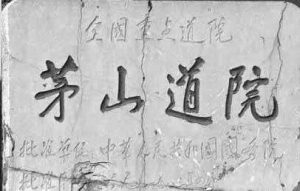 全国重点道院
茅山道院
批准单位 中华人民共和国国务院
批准